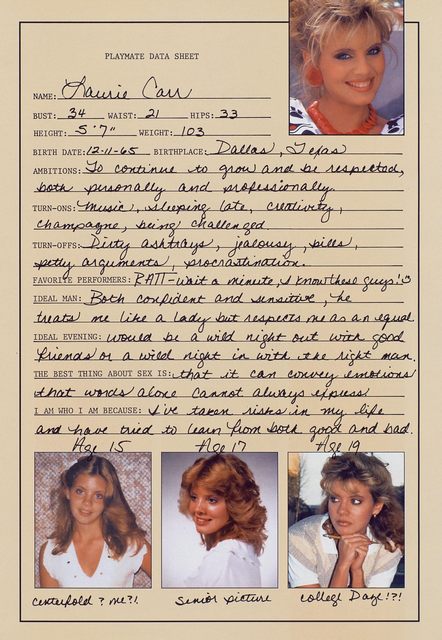 PLAYMATE DATA SHEET
NAME: Laurie Carr
BUST: 34 WAIST: 21 HIPS: 33
HEIGHT: 5'7" WEIGHT: 103
BIRTH DATE: 12-11-65 BIRTHPLACE: Dallas, Texas
AMBITIONS: To continue to grow and be respected,
both personally and professionally.
TURN-ONS: Music, sleeping late, creativity,
champagne, being challenged.
TURN-OFFS: Dirty ashtrays, jealousy, bills,
petty arguments, procrastination.
FAVORITE PERFORMERS: RATT-Wait a minute, I know these guys!
IDEAL MAN: Both confident and sensitive, he
treats me like a lady but respects me as an equal.
IDEAL EVENING: would be a wild night out with good
friends or a wild night in with the right man.
THE BEST THING ABOUT SEX IS: that it can convey emotions
that words alone cannot always express
I AM WHO I AM BECAUSE: I've taken risks in my life
and have tried to learn from both good and bad.
Age 15 Age 17 Age 19
Centerfold? me?! Senior picture College Daze!?!